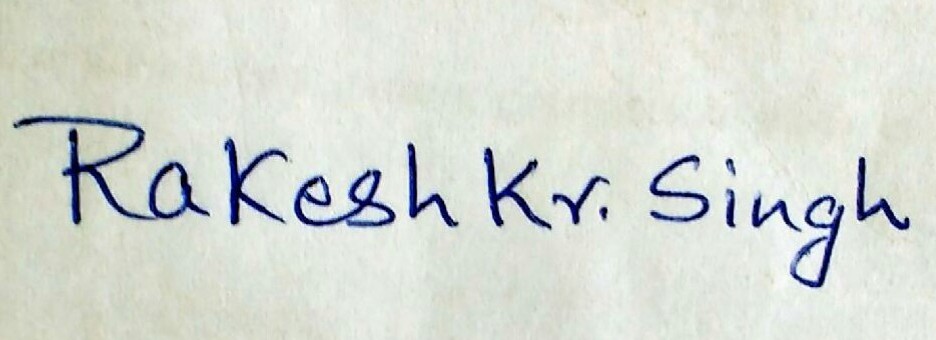 Rakesh Kr. Singh